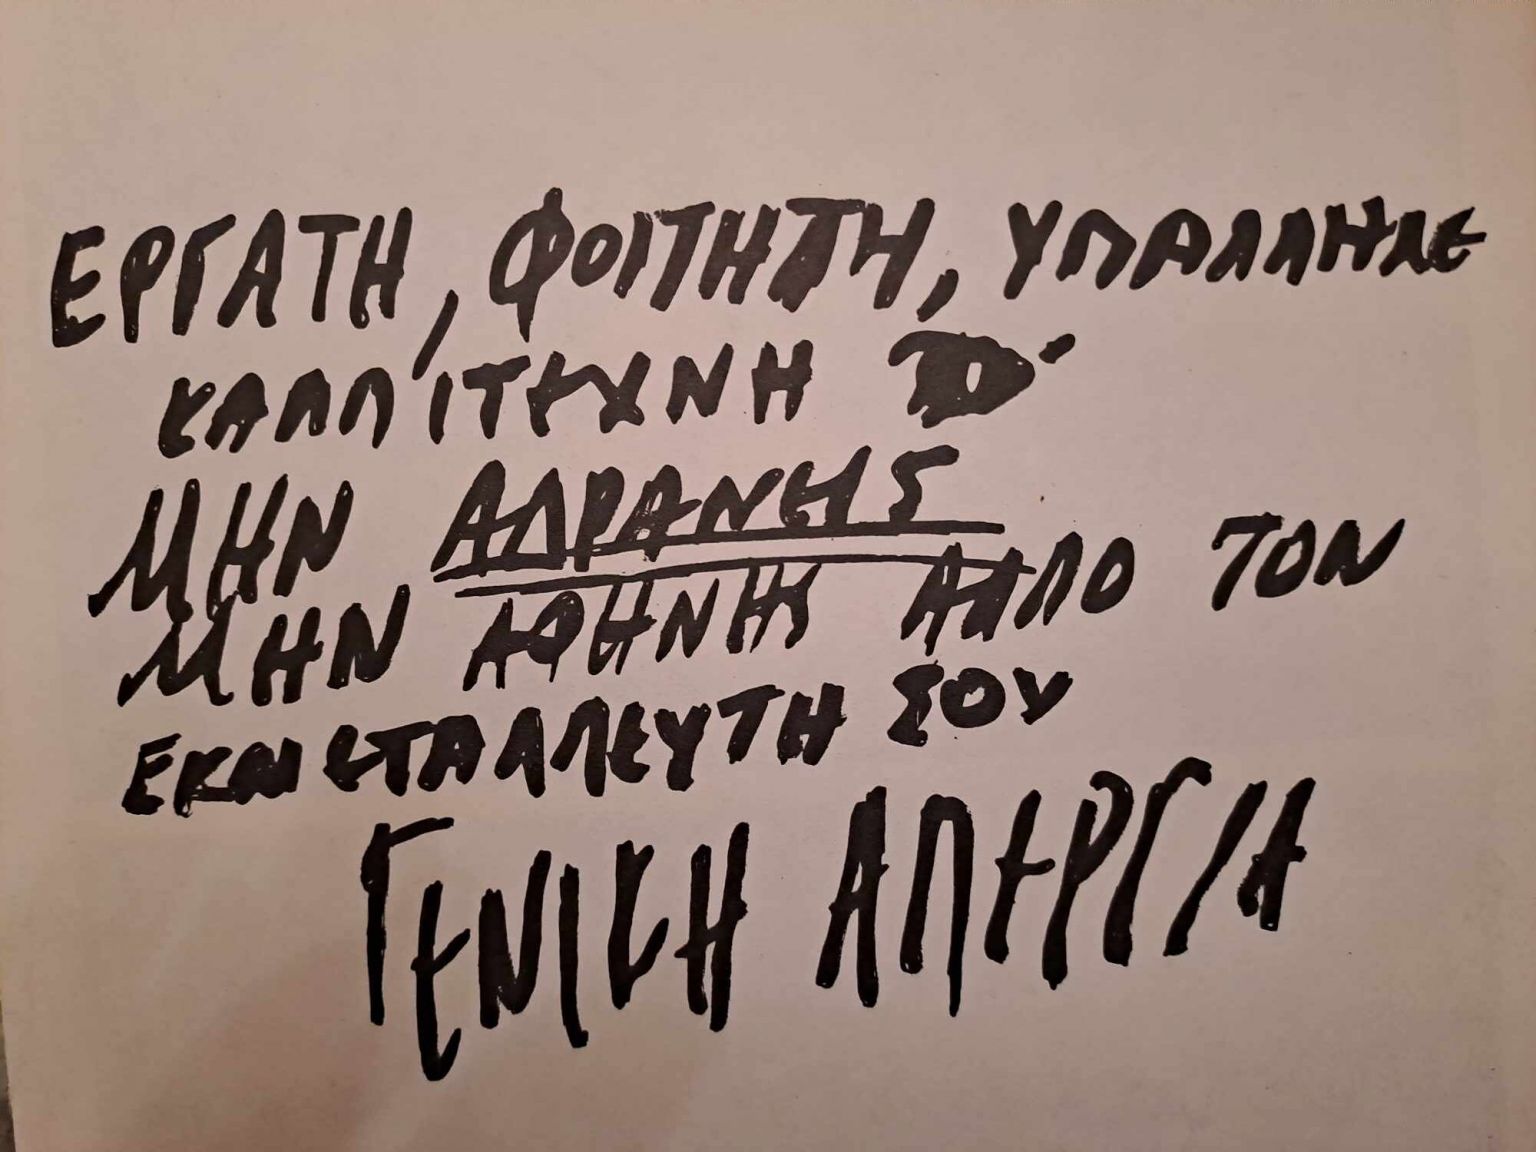 ΕΡΓΑΤΗ, ΦΟΙΤΗΤΗ, ΥΠΑΛΛΗΛΕ
ΚΑΛΛΙΤΕΧΝΗ
ΜΗΝ ΑΔΡΑΝΗΣ
ΜΗΝ ΑΠΟ ΤΟΝ
ΕΚΜΕΤΑΛΛΕΥΤΗ ΣΟΥ
ΓΕΝΙΚΗ ΑΠΕΡΓΙΑ